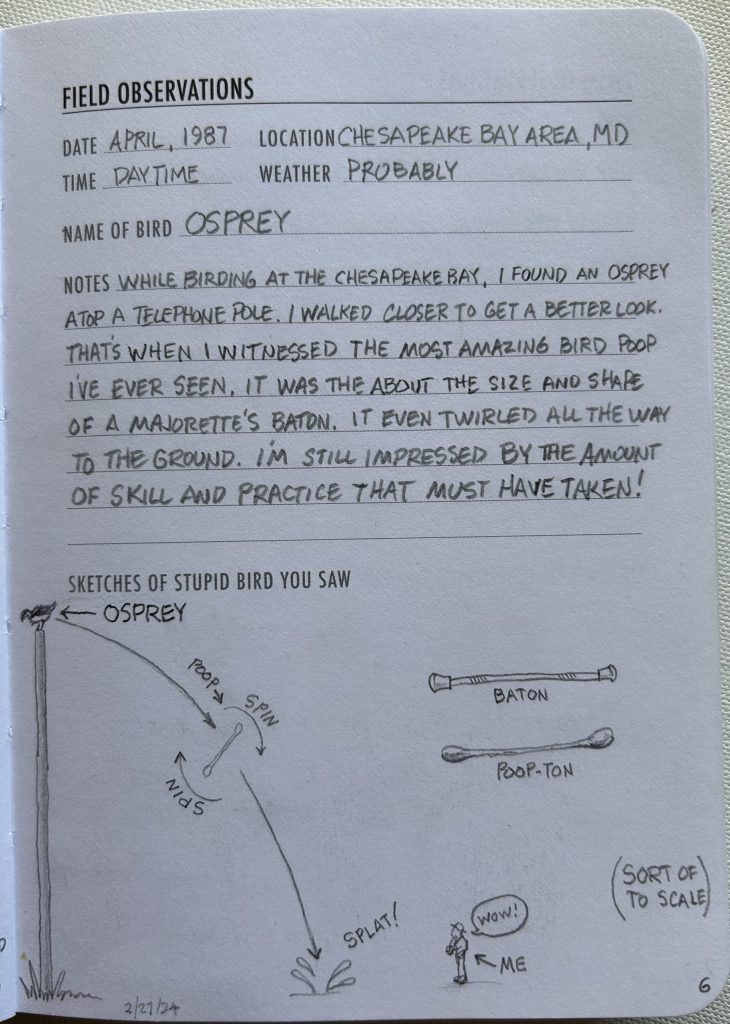 FIELD OBSERVATIONS
DATE APRIL, 1987 LOCATION CHESAPEAKE BAY AREA, MD
TIME DAYTIME WEATHER PROBABLY
NAME OF BIRD OSPREY
NOTES WHILE BIRDING AT THE CHESAPEAKE BAY, I FOUND AN OSPREY
ATOP A TELEPHONE POLE. I WALKED CLOSER TO GET A BETTER LOOK.
THAT'S WHEN I WITNESSED THE MOST AMAZING BIRD POOP
I'VE EVER SEEN. IT WAS THE ABOUT THE SIZE AND SHAPE
OF A MAJORETTE'S BATON. IT EVEN TWIRLED ALL THE WAY
TO THE GROUND. I'M STILL IMPRESSED BY THE AMOUNT
OF SKILL AND PRACTICE THAT MUST HAVE TAKEN!
SKETCHES OF STUPID BIRD YOU SAW
OSPREY
POOP
SPIN
SPIN
BATON
POOP-TON
(SORT OF
TO SCALE)
SPLAT!
WOW!
ME
2/27/24
6